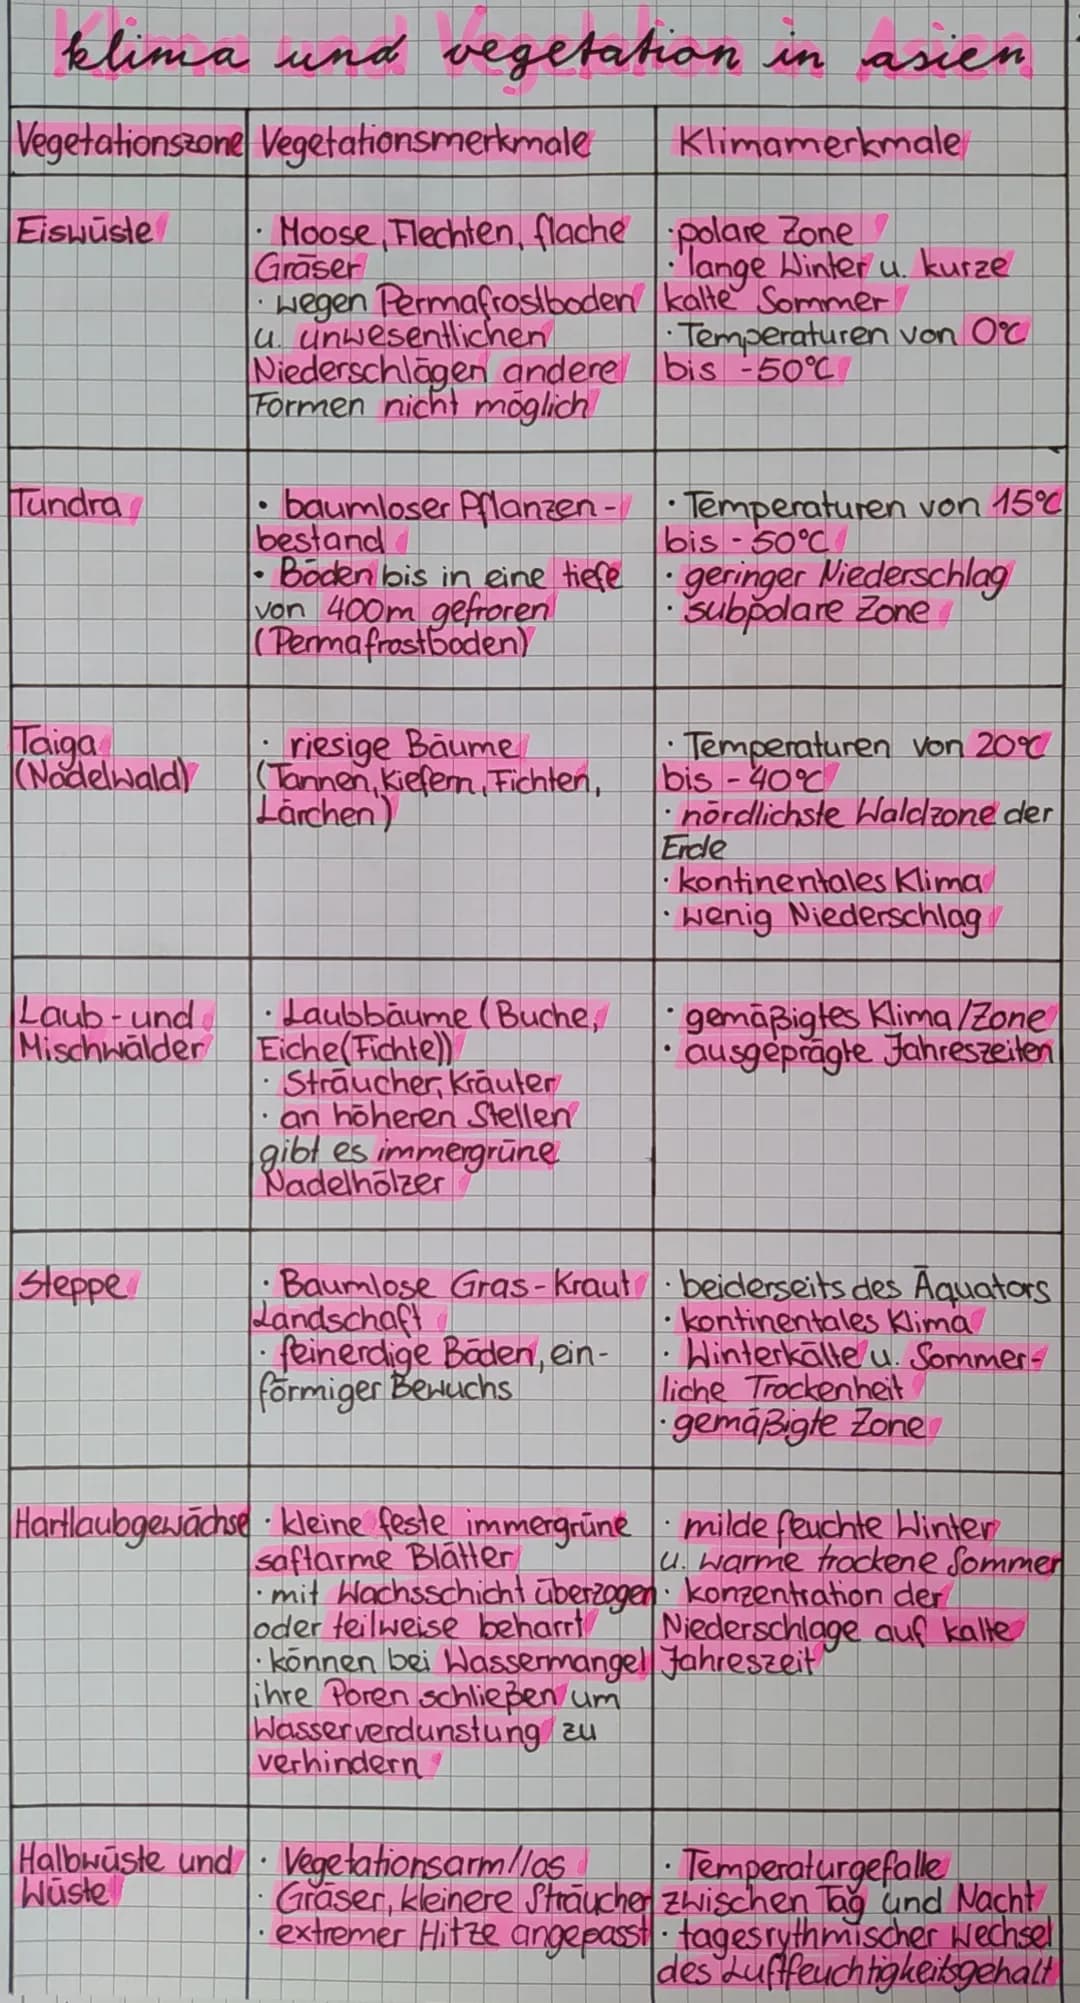 Klima und Vegetation in Asien
Vegetationszone
Vegetationsmerkmale
Klimamerkmale
Eiswüste
· Moose, Flechten, flache
Gräser
· wegen Permafrostboden
u. unwesentlichen
Niederschlägen andere
Formen nicht möglich
· polare Zone
· lange Winter u. kurze
kalte Sommer
· Temperaturen von 0°C
bis -50°C
Tundra
· baumloser Pflanzen-
bestand
· Böden bis in eine tiefe
von 400m gefroren
(Permafrostboden)
· Temperaturen von 15°C
bis -50°C
· geringer Niederschlag
· subpolare Zone
Taiga
(Nadelwald)
· riesige Bäume
(Tannen, Kiefern, Fichten,
Lärchen)
· Temperaturen von 20°C
bis -40°C
· nördlichste Waldzone der
Erde
· kontinentales Klima
· wenig Niederschlag
Laub- und
Mischwälder
· Laubbäume (Buche,
Eiche(Fichte))
· Sträucher, Kräuter
· an höheren Stellen
gibt es immergrüne
Nadelhölzer
· gemäßigtes Klima/Zone
· ausgeprägte Jahreszeiten
Steppe
· Baumlose Gras-Kraut
Landschaft
· feinerdige Böden, ein-
förmiger Bewuchs
· beiderseits des Äquators
· kontinentales Klima
· Winterkälte u. Sommer-
liche Trockenheit
· gemäßigte Zone
Hartlaubgewächse
· kleine feste immergrüne
saftarme Blätter
· mit Wachsschicht überzogen
oder teilweise beharrt
· können bei Wassermangel
ihre Poren schließen um
Wasserverdunstung zu
verhindern
· milde feuchte Winter
u. warme trockene Sommer
· konzentration der
Niederschlage auf kalte
Jahreszeit
Halbwüste und
Wüste
· Vegetationsarm/los
· Gräser, kleinere Sträucher
· extremer Hitze angepasst
· Temperaturgefälle
zwischen Tag und Nacht
· tagesrythmischer Wechsel
des Luftfeuchtigkeitsgehalt